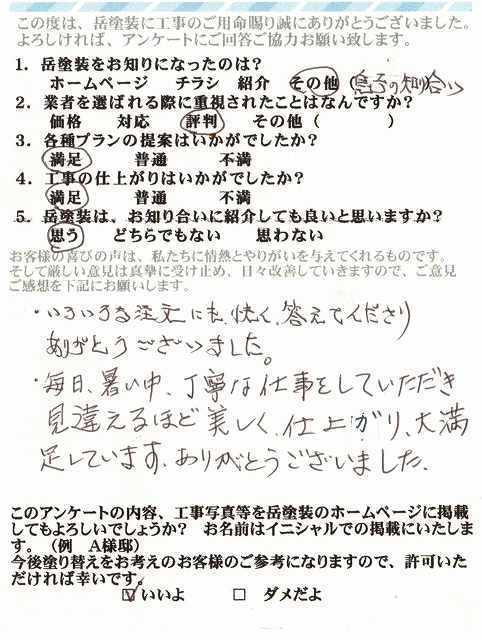 この度は、岳塗装に工事のご用命賜り誠にありがとうございました。
よろしければ、アンケートにご回答ご協力お願い致します。
1．岳塗装をお知りになったのは？
ホームページ　チラシ　紹介　その他（息子の知り合い
2．業者を選ばれる際に重視されたことはなんですか？
価格　対応　評判　その他（　　　　）
3．各種プランの提案はいかがでしたか？
満足　普通　不満
4．工事の仕上がりはいかがでしたか？
満足　普通　不満
5．岳塗装は、お知り合いに紹介しても良いと思いますか？
思う　どちらでもない　思わない
お客様の喜びの声は、私たちに情熱とやりがいを与えてくれるものです。
そして厳しい意見は真摯に受け止め、日々改善していきますので、ご意見
ご感想を下記にお願いします。
・いろいろな注文にも、快く、答えてくださり
ありがとうございました。
・毎日、暑い中、丁寧な仕事をしていただき
見違えるほど美しく、仕上がり、大満
足しています。ありがとうございました。
このアンケートの内容、工事写真等を岳塗装のホームページに掲載
してもよろしいでしょうか？　お名前はイニシャルでの掲載にいたしま
す。（例　A様邸）
今後塗り替えをお考えのお客様のご参考になりますので、許可いた
だければ幸いです。
☑ いいよ　□ ダメだよ